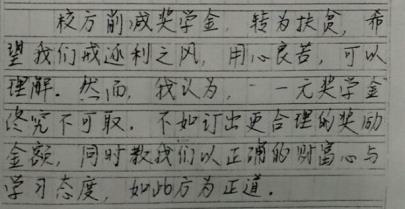 校方削减奖学金，转为扶贫，希
望我们戒逐利之风，用心良苦，可以
理解。然而，我认为，一元奖学金
终究不可取。不如订出更合理的奖励
金额，同时教我们以正确的财富心与
学习态度，如此方为正道。